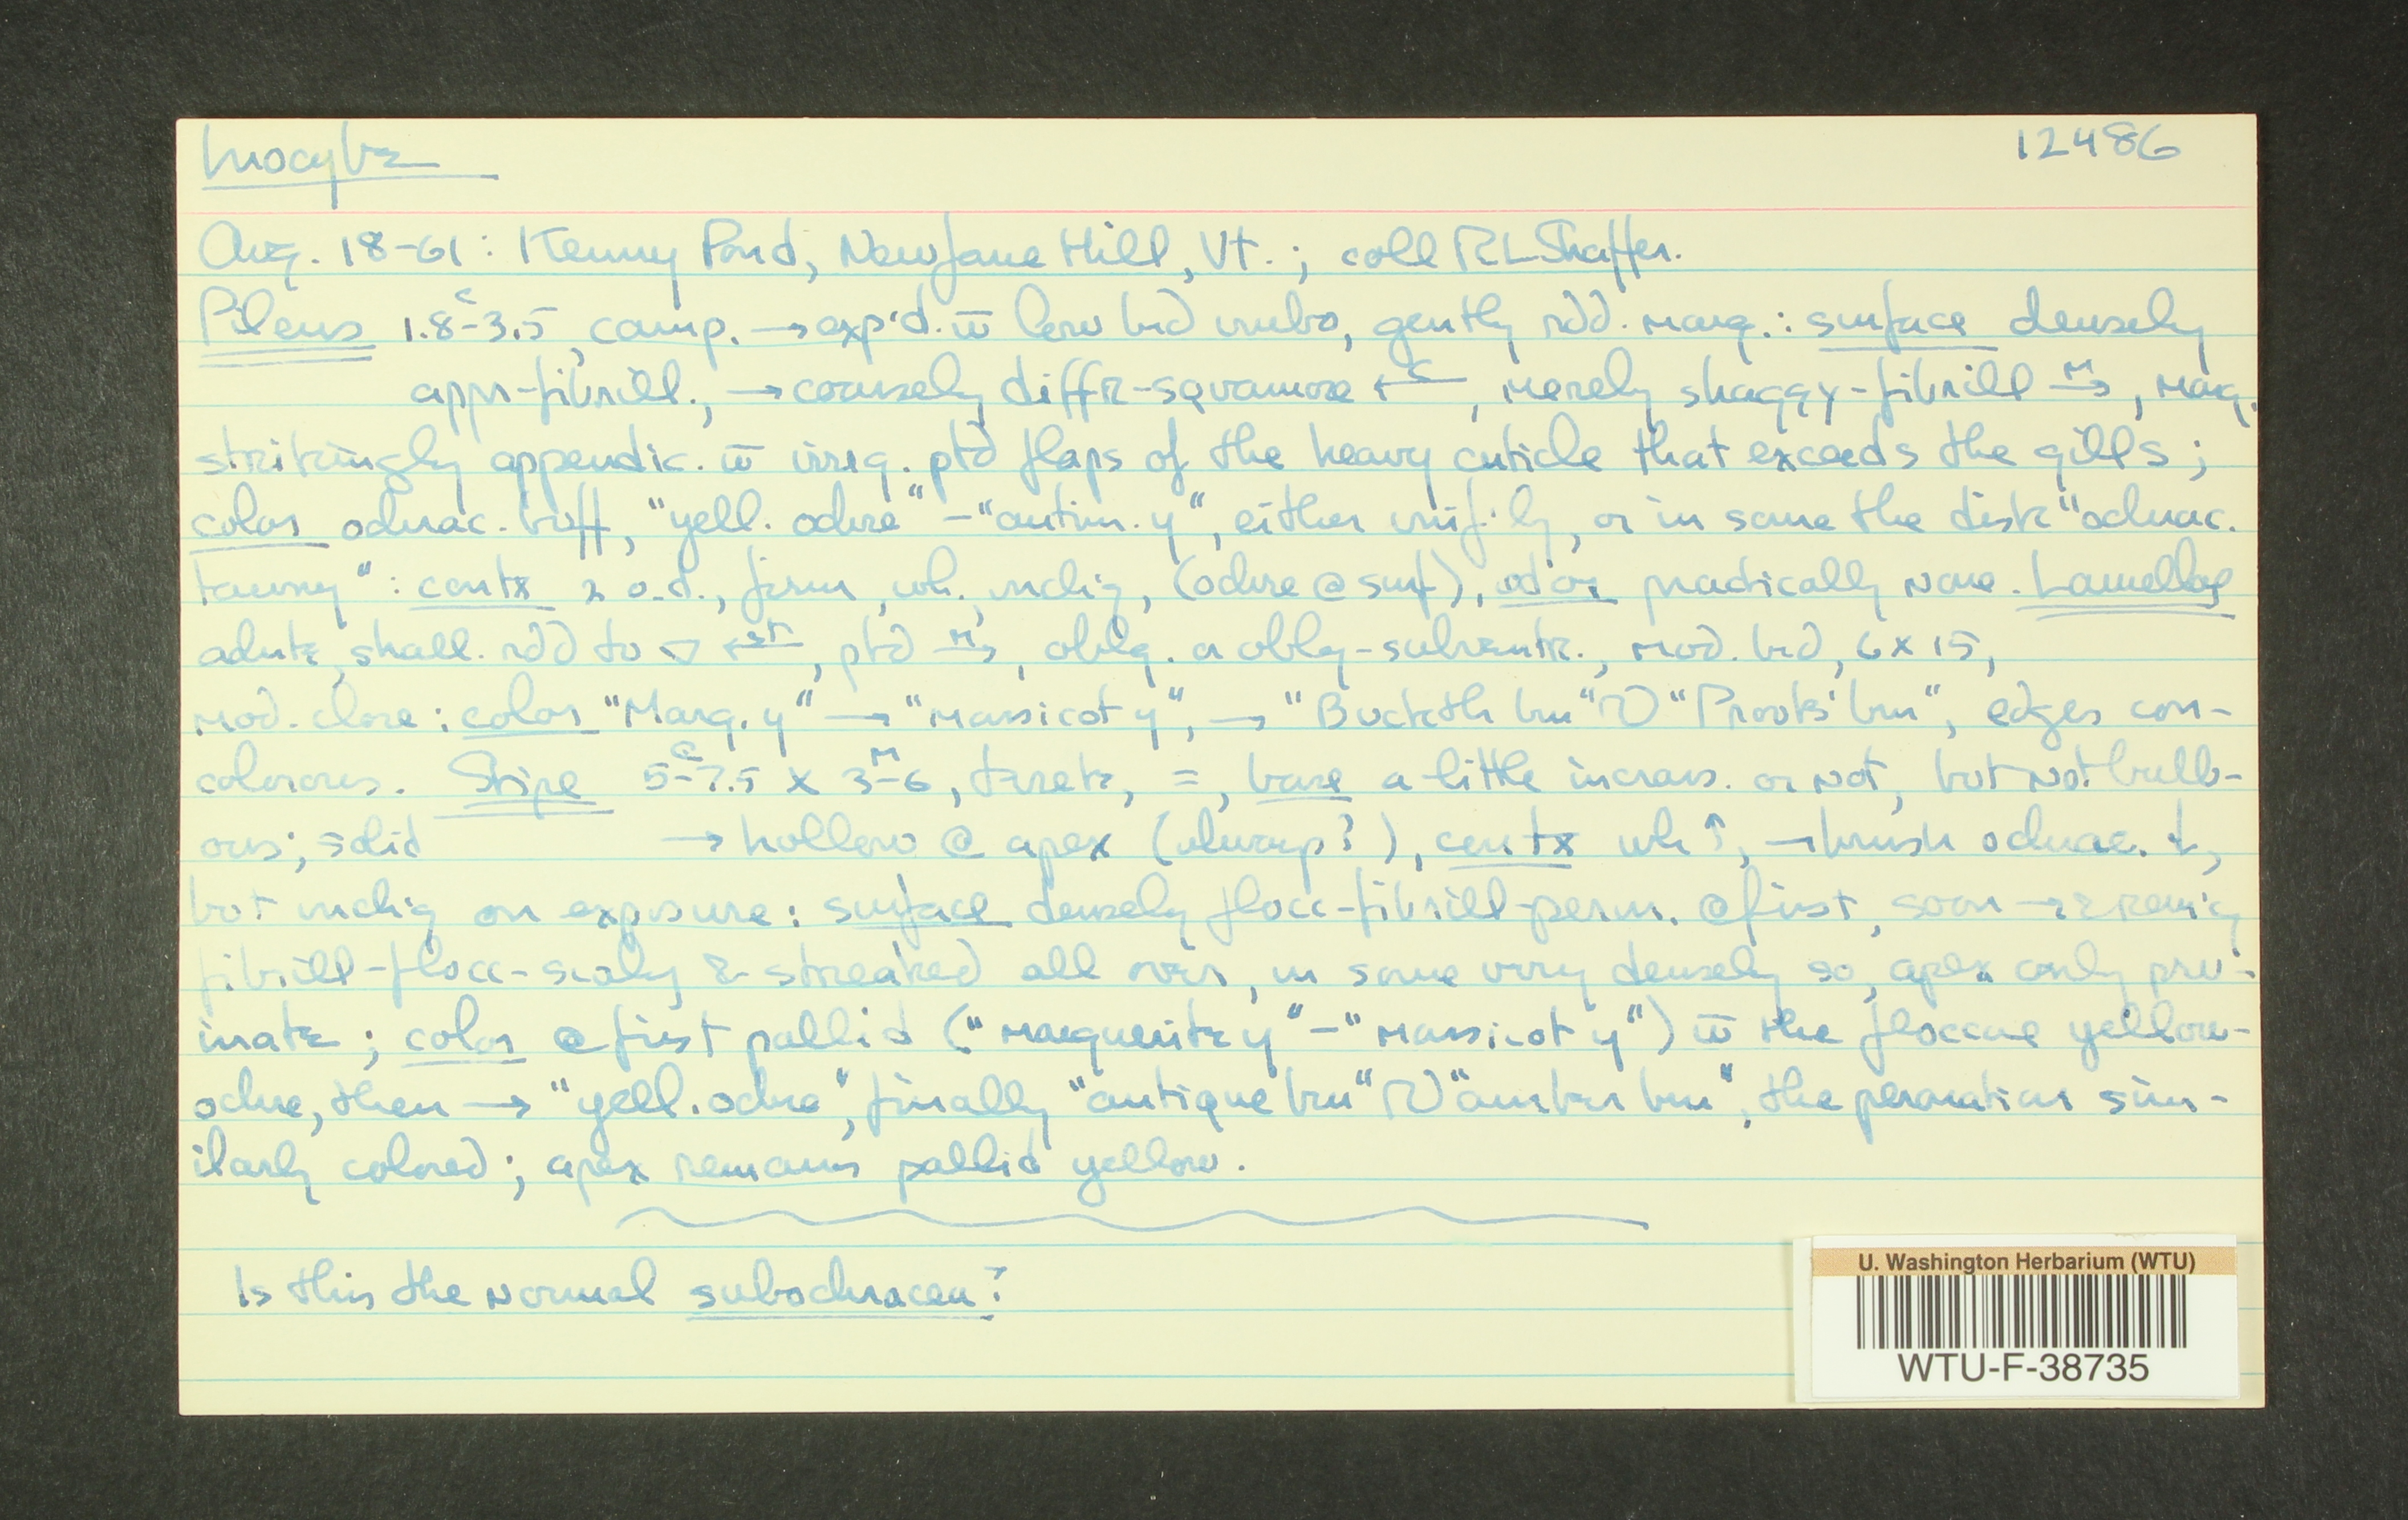 Inocybe
12486
Aug. 18-61: Kenny Pond, Newfane Hill, Vt.; coll RLShaffer.
Pileus 1.8-3.5 c, camp. → exp'd. w̄ low brd umbo, gently rdd. marg.: surface densely
appr-fibrill., → coarsely diffr-squamose ←c, merely shaggy-fibrill →M, marg.
strikingly appendic. w̄ irreg. ptd flaps of the heavy cuticle that exceeds the gills;
color ochrac. buff, "yell. ochre" - "antim. y", either unif'ly, or in some the disk "ochrac.
tawny": contx o.d., firm, wh., unchg, (ochre @ surf), odor practically none. Lamellae
adnte, shall. rdd to ←st, ptd →M, oblq. or oblq-subventr., mod. brd, 6 x 15,
mod. close: color "Marg. y" → "massicot y", → "Buckth brn" "Prouts' brn", edges con-
colorous. Stipe 5-7.5 c x 3-6 M, terete, =, base a little incrass. or not, but not bulb-
ous; solid → hollow @ apex (always?), contx wh ↑, → brnsh ochrac. ↓,
but unchg on exposure: surface densely flocc-fibrill-peron. @ first, soon →
fibrill-flocc-scaly & streaked all over, in some very densely so, apex only pru-
inate; color @ first pallid ("marguerite y" - "massicot y") w̄ the floccae yellow-
ochre, then → "yell. ochre", finally "antique brn" "amber brn", the peronation sim-
ilarly colored; apex remains pallid yellow.
Is this the normal subochracea?
U. Washington Herbarium (WTU)
WTU-F-38735